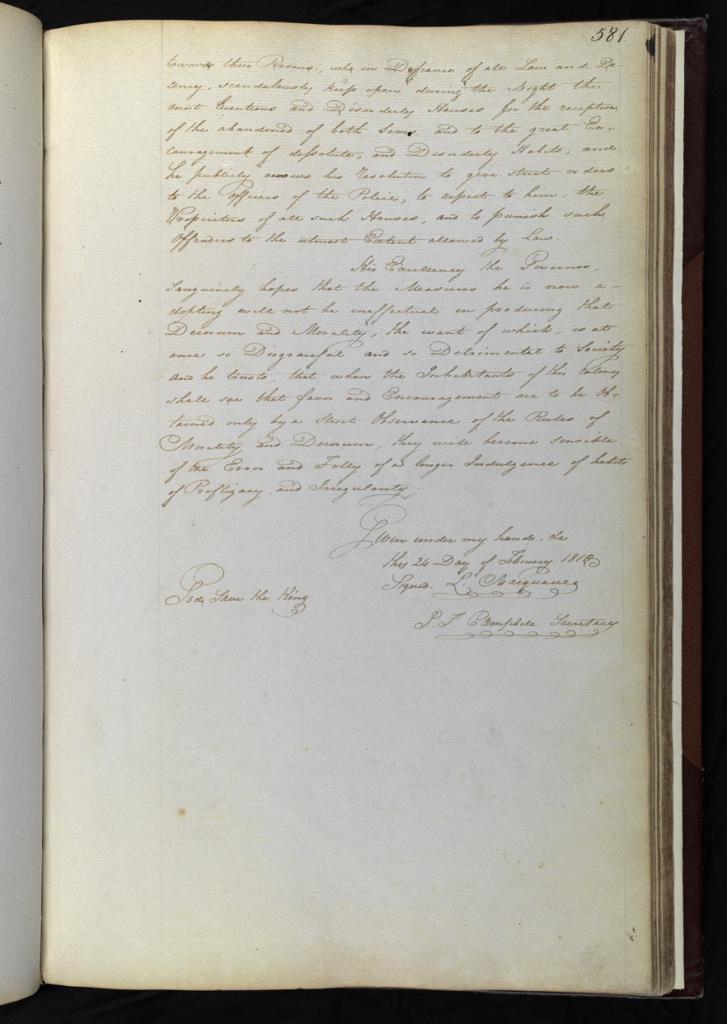 581
towards those Persons, who in Defiance of all Law and De-
cency, scandalously keep open during the Night the
most licentious and Disorderly Houses for the reception
of the abandoned of both Sexes and to the great En-
couragement of dissolute, and Disorderly Habits, and
he publicly avows his resolution to give strict orders
to the officers of the Police, to report to him, the
Proprietors of all such Houses, and to punish such
Offenders to the utmost Extent allowed by Law.
His Excellency the Governor,
Sanguinely hopes that the Measures he is now a-
dopting will not be ineffectual in producing that
Decorum and Morality, the want of which, is at
once so Disgraceful and so Detrimental to Society
and he trusts, that when the Inhabitants of this Colony
shall see that favor and Encouragement are to be Ob-
tained only by a Strict Observance of the Rules of
Morality and Decorum, they will become sensible
of the Error and Folly of a longer Indulgence of habits
of Profligacy, and Irregularity.
Given under my hand &c
this 24 Day of February
Signed L. Macquarie
God Save the King
J. T. Campbell Secretary